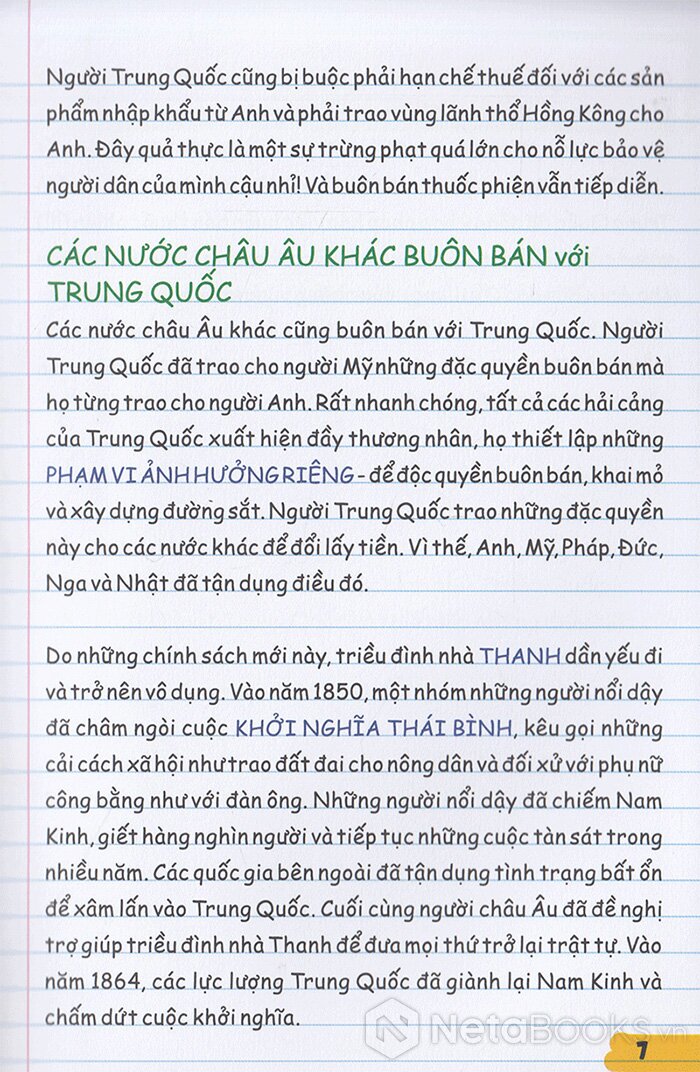 Người Trung Quốc cũng bị buộc phải hạn chế thuế đối với các sản
phẩm nhập khẩu từ Anh và phải trao vùng lãnh thổ Hồng Kông cho
Anh. Đây quả thực là một sự trừng phạt quá lớn cho nỗ lực bảo vệ
người dân của mình cậu nhỉ! Và buôn bán thuốc phiện vẫn tiếp diễn.
CÁC NƯỚC CHÂU ÂU KHÁC BUÔN BÁN với
TRUNG QUỐC
Các nước châu Âu khác cũng buôn bán với Trung Quốc. Người
Trung Quốc đã trao cho người Mỹ những đặc quyền buôn bán mà
họ từng trao cho người Anh. Rất nhanh chóng, tất cả các hải cảng
của Trung Quốc xuất hiện đầy thương nhân, họ thiết lập những
PHẠM VI ẢNH HƯỞNG RIÊNG - để độc quyền buôn bán, khai mỏ
và xây dựng đường sắt. Người Trung Quốc trao những đặc quyền
này cho các nước khác để đổi lấy tiền. Vì thế, Anh, Mỹ, Pháp, Đức,
Nga và Nhật đã tận dụng điều đó.
Do những chính sách mới này, triều đình nhà THANH dần yếu đi
và trở nên vô dụng. Vào năm 1850, một nhóm những người nổi dậy
đã châm ngòi cuộc KHỞI NGHĨA THÁI BÌNH, kêu gọi những
cải cách xã hội như trao đất đai cho nông dân và đối xử với phụ nữ
công bằng như với đàn ông. Những người nổi dậy đã chiếm Nam
Kinh, giết hàng nghìn người và tiếp tục những cuộc tàn sát trong
nhiều năm. Các quốc gia bên ngoài đã tận dụng tình trạng bất ổn
để xâm lấn vào Trung Quốc. Cuối cùng người châu Âu đã đề nghị
trợ giúp triều đình nhà Thanh để đưa mọi thứ trở lại trật tự. Vào
năm 1864, các lực lượng Trung Quốc đã giành lại Nam Kinh và
chấm dứt cuộc khởi nghĩa.
NetaBooks.vn
7